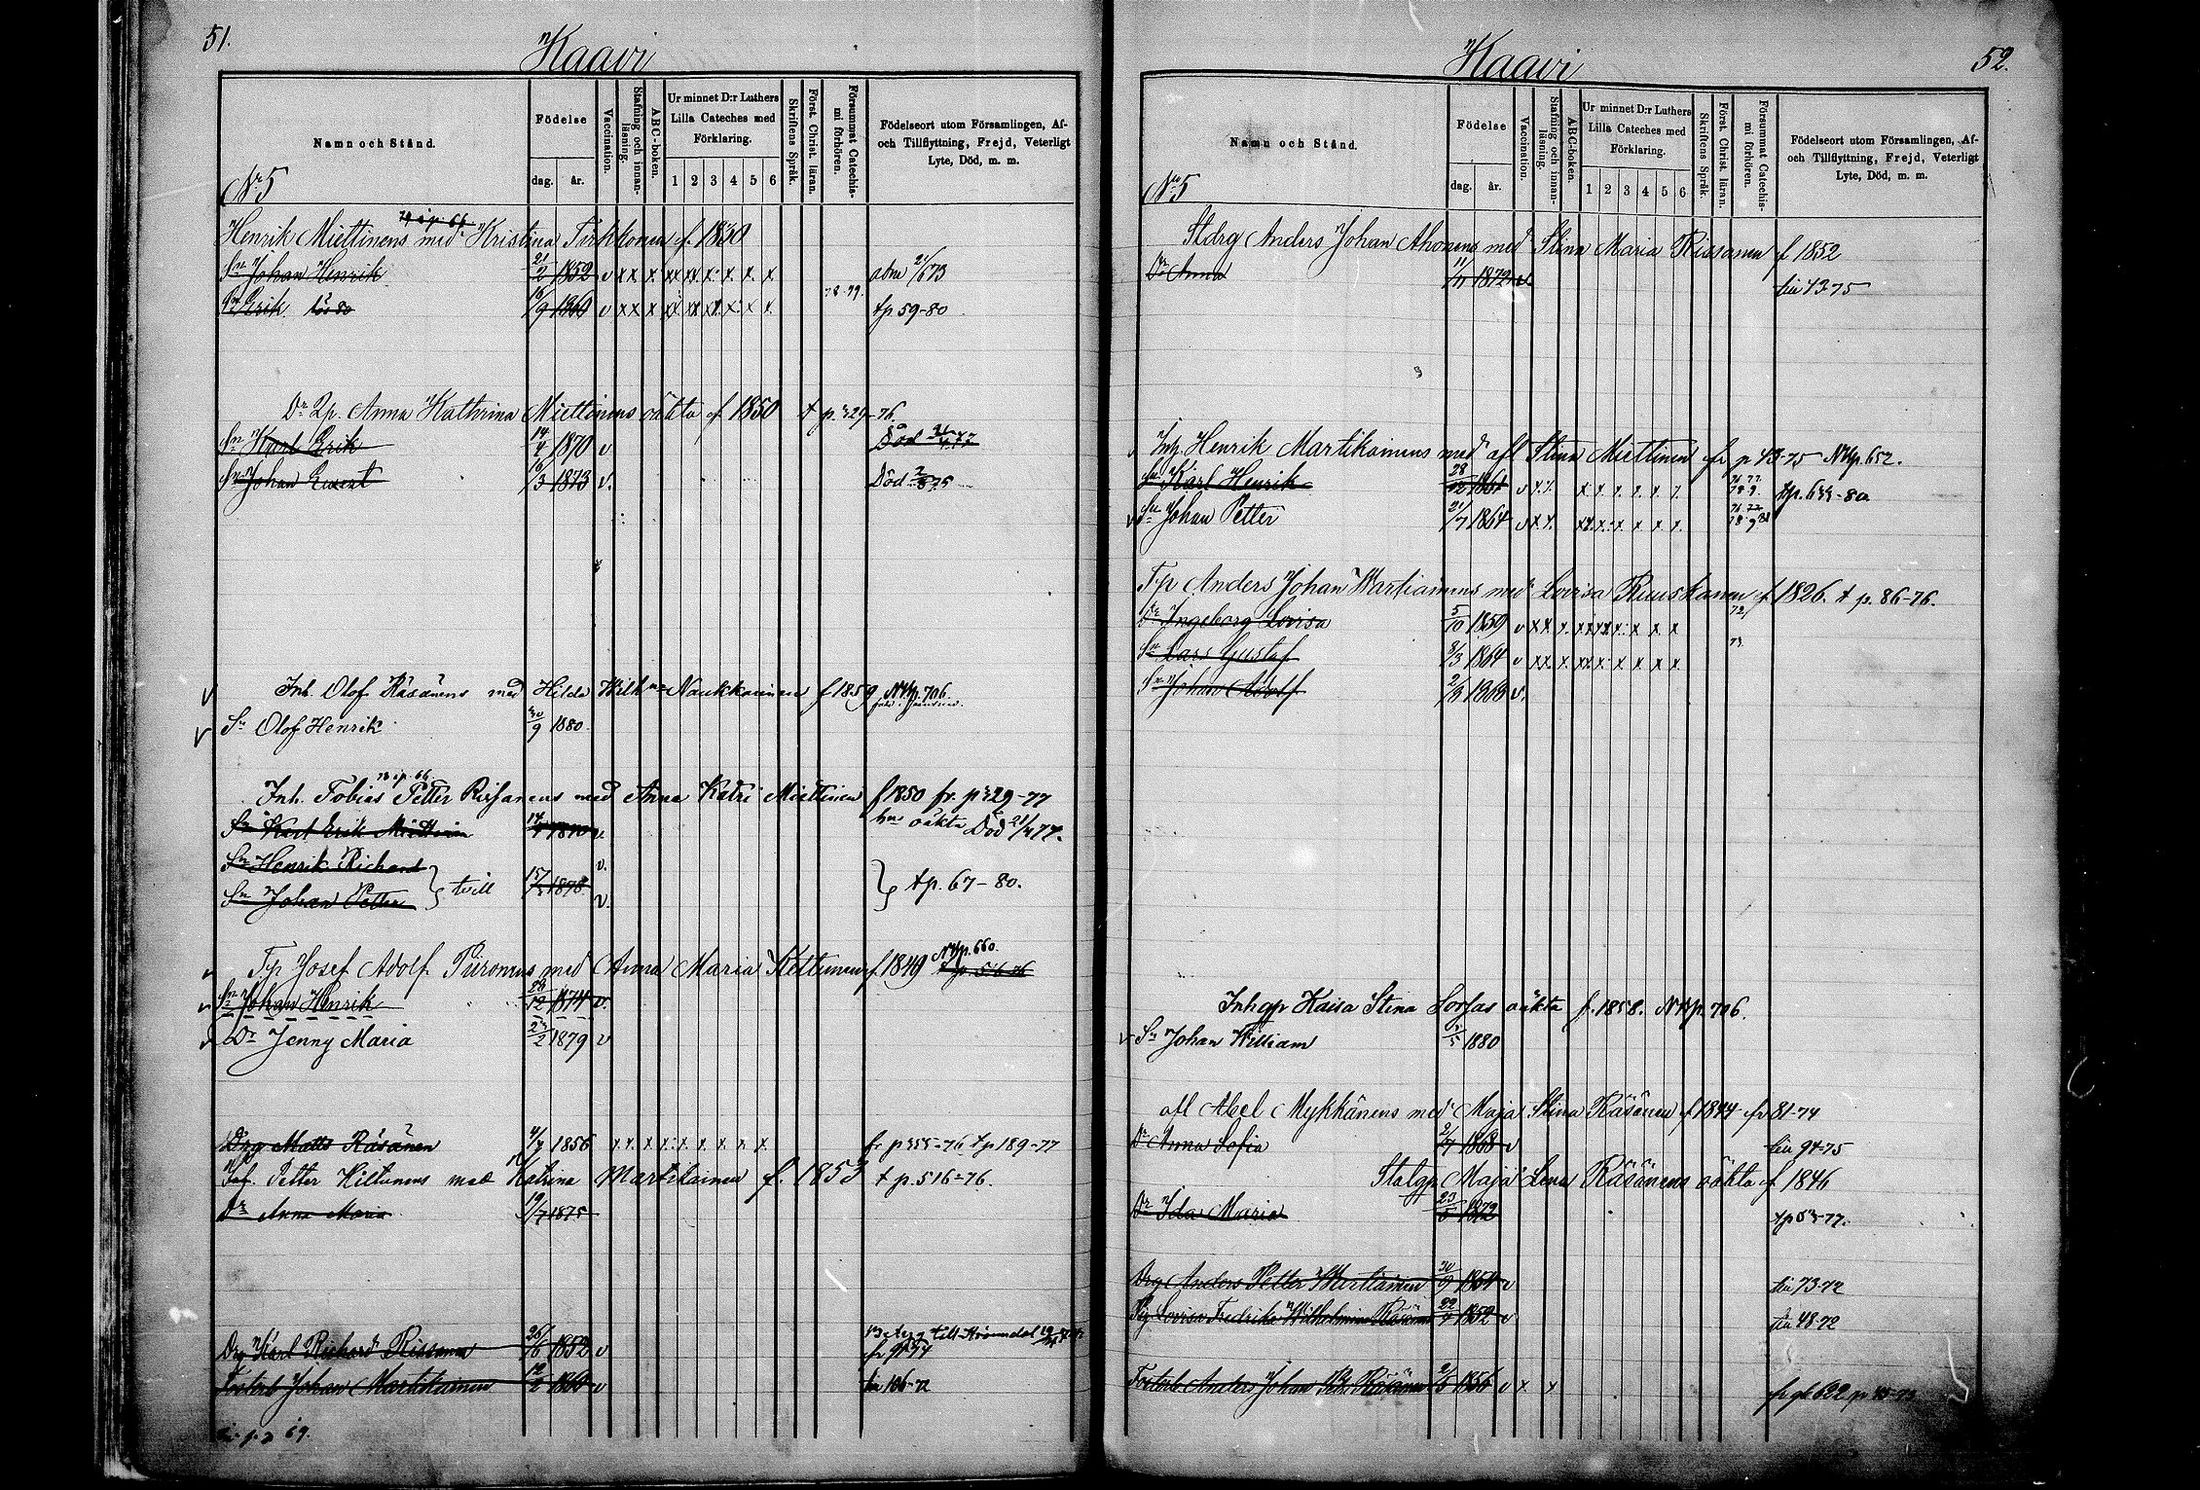 51.
Kaavi
Namn och Stånd.
Födelse
dag. år.
Vaccination.
Stafning och innan-läsning.
ABC-boken.
Ur minnet D:r Luthers
Lilla Cateches med
Förklaring.
1 2 3 4 5 6
Skriftens Språk.
Först. Christ. läran.
Försummat Catechis-mi förhören.
Födelseort utom Församlingen, Af-
och Tillflyttning, Frejd, Veterligt
Lyte, Död, m. m.
No 5
Henrik Miettinens med Kristina Tirkkonen f. 1830
Sn Johan Henrik 21/2 1852 v x x x xx xx x x x x
Sn Erik 16/9 1860 v x x x x xx x x x x 78-79. tp 59-80
Dr Qp. Anna Kathrina Miettinens oäkta f. 1850 t p. 329-76
Sn Karl Erik 14/4 1870 v Död
Sn Johan Evert 16/3 1873 v. Död
Inh. Olof Räsänens med Hilda Wilh Naukkarinen f 1859 NKp. 706.
Sn Olof Henrik 9 1880.
Inh. Tobias Petter Rissanens med Anna Katri Miettinen f 1850 fr. p 329-77
Sn Karl Erik Miettinen 14/4 1870 v. oäkta Död 21/4 77.
Sn Henrik Richard v.
Sn Johan Petter } tvill 15/ 1878. v. } tp. 67-80.
Tp Josef Adolf Piironens med Anna Maria Kettunen f. 1849 NKp. 660.
Sn Johan Henrik 28/12 1874 v.
Dr Jenny Maria 23/2 1879 v
Drg Matts Räsänen 4/7 1856 x x x x x x x x x fr p 355-76 tp 189-77
Petter Hiltunens med Katrina Martikainen f. 1853 t p. 516-76.
Dr Anna Maria 19/7 1875
Drg Karl Richard Rissanen 25/6 1852 v
Fosterb Johan Martikainen 12/2 1860 v
69.
52.
Kaavi
Namn och Stånd.
Födelse
dag. år.
Vaccination.
Stafning och innan-läsning.
ABC-boken.
Ur minnet D:r Luthers
Lilla Cateches med
Förklaring.
1 2 3 4 5 6
Skriftens Språk.
Först. Christ. läran.
Försummat Catechis-mi förhören.
Födelseort utom Församlingen, Af-
och Tillflyttning, Frejd, Veterligt
Lyte, Död, m. m.
No 5
Stdrg Anders Johan Ahonens med Stina Maria Rissanen f 1852
Dr Anna 11/11 1872 v 43-75
Inh. Henrik Martikainens med afl Stina Miettinen fr p 43-75 NKp. 652.
Sn Karl Henrik 28/12 1861 v x x x x x x x x 76 77 78 9. tp. 633-80
Sn Johan Petter 21/7 1864 v x x xx x x x x x 76 77 78 9
Tp Anders Johan Wartiainens med Lovisa Ruuskanen f 1826. t p. 86-76.
Dr Ingeborg Lovisa 5/10 1859 v x x x xx xx x x x x 72
Sn Lars Gustaf 8/3 1864 v xx x xx x x x x x 73
Sn Johan Adolf 2/3 1868 v.
Inhqp Kaisa Stina Sorsas oäkta f. 1858. NKp. 706.
Sn Johan William 5 1880
afl Abel Mykkänens med Maja Stina Räsänen f 1844 fr 81-74
Dr Anna Sofia 2/7 1868 v 94-75
Statqp Maja Lena Räsänens oäkta f 1846
Dr Ida Maria 23/5 1872 tp 53-77.
Drg Anders Petter Wartiainen 30/9 1854 v 73-72
Pig Lovisa Fredrika Wilhelmina Räsänen 22/4 1852 v 48-72
Fosterb Anders Johan Räsänen 2/5 1856 v x x